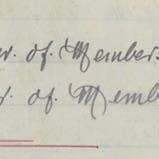 r. of. Member.
r. of Memb